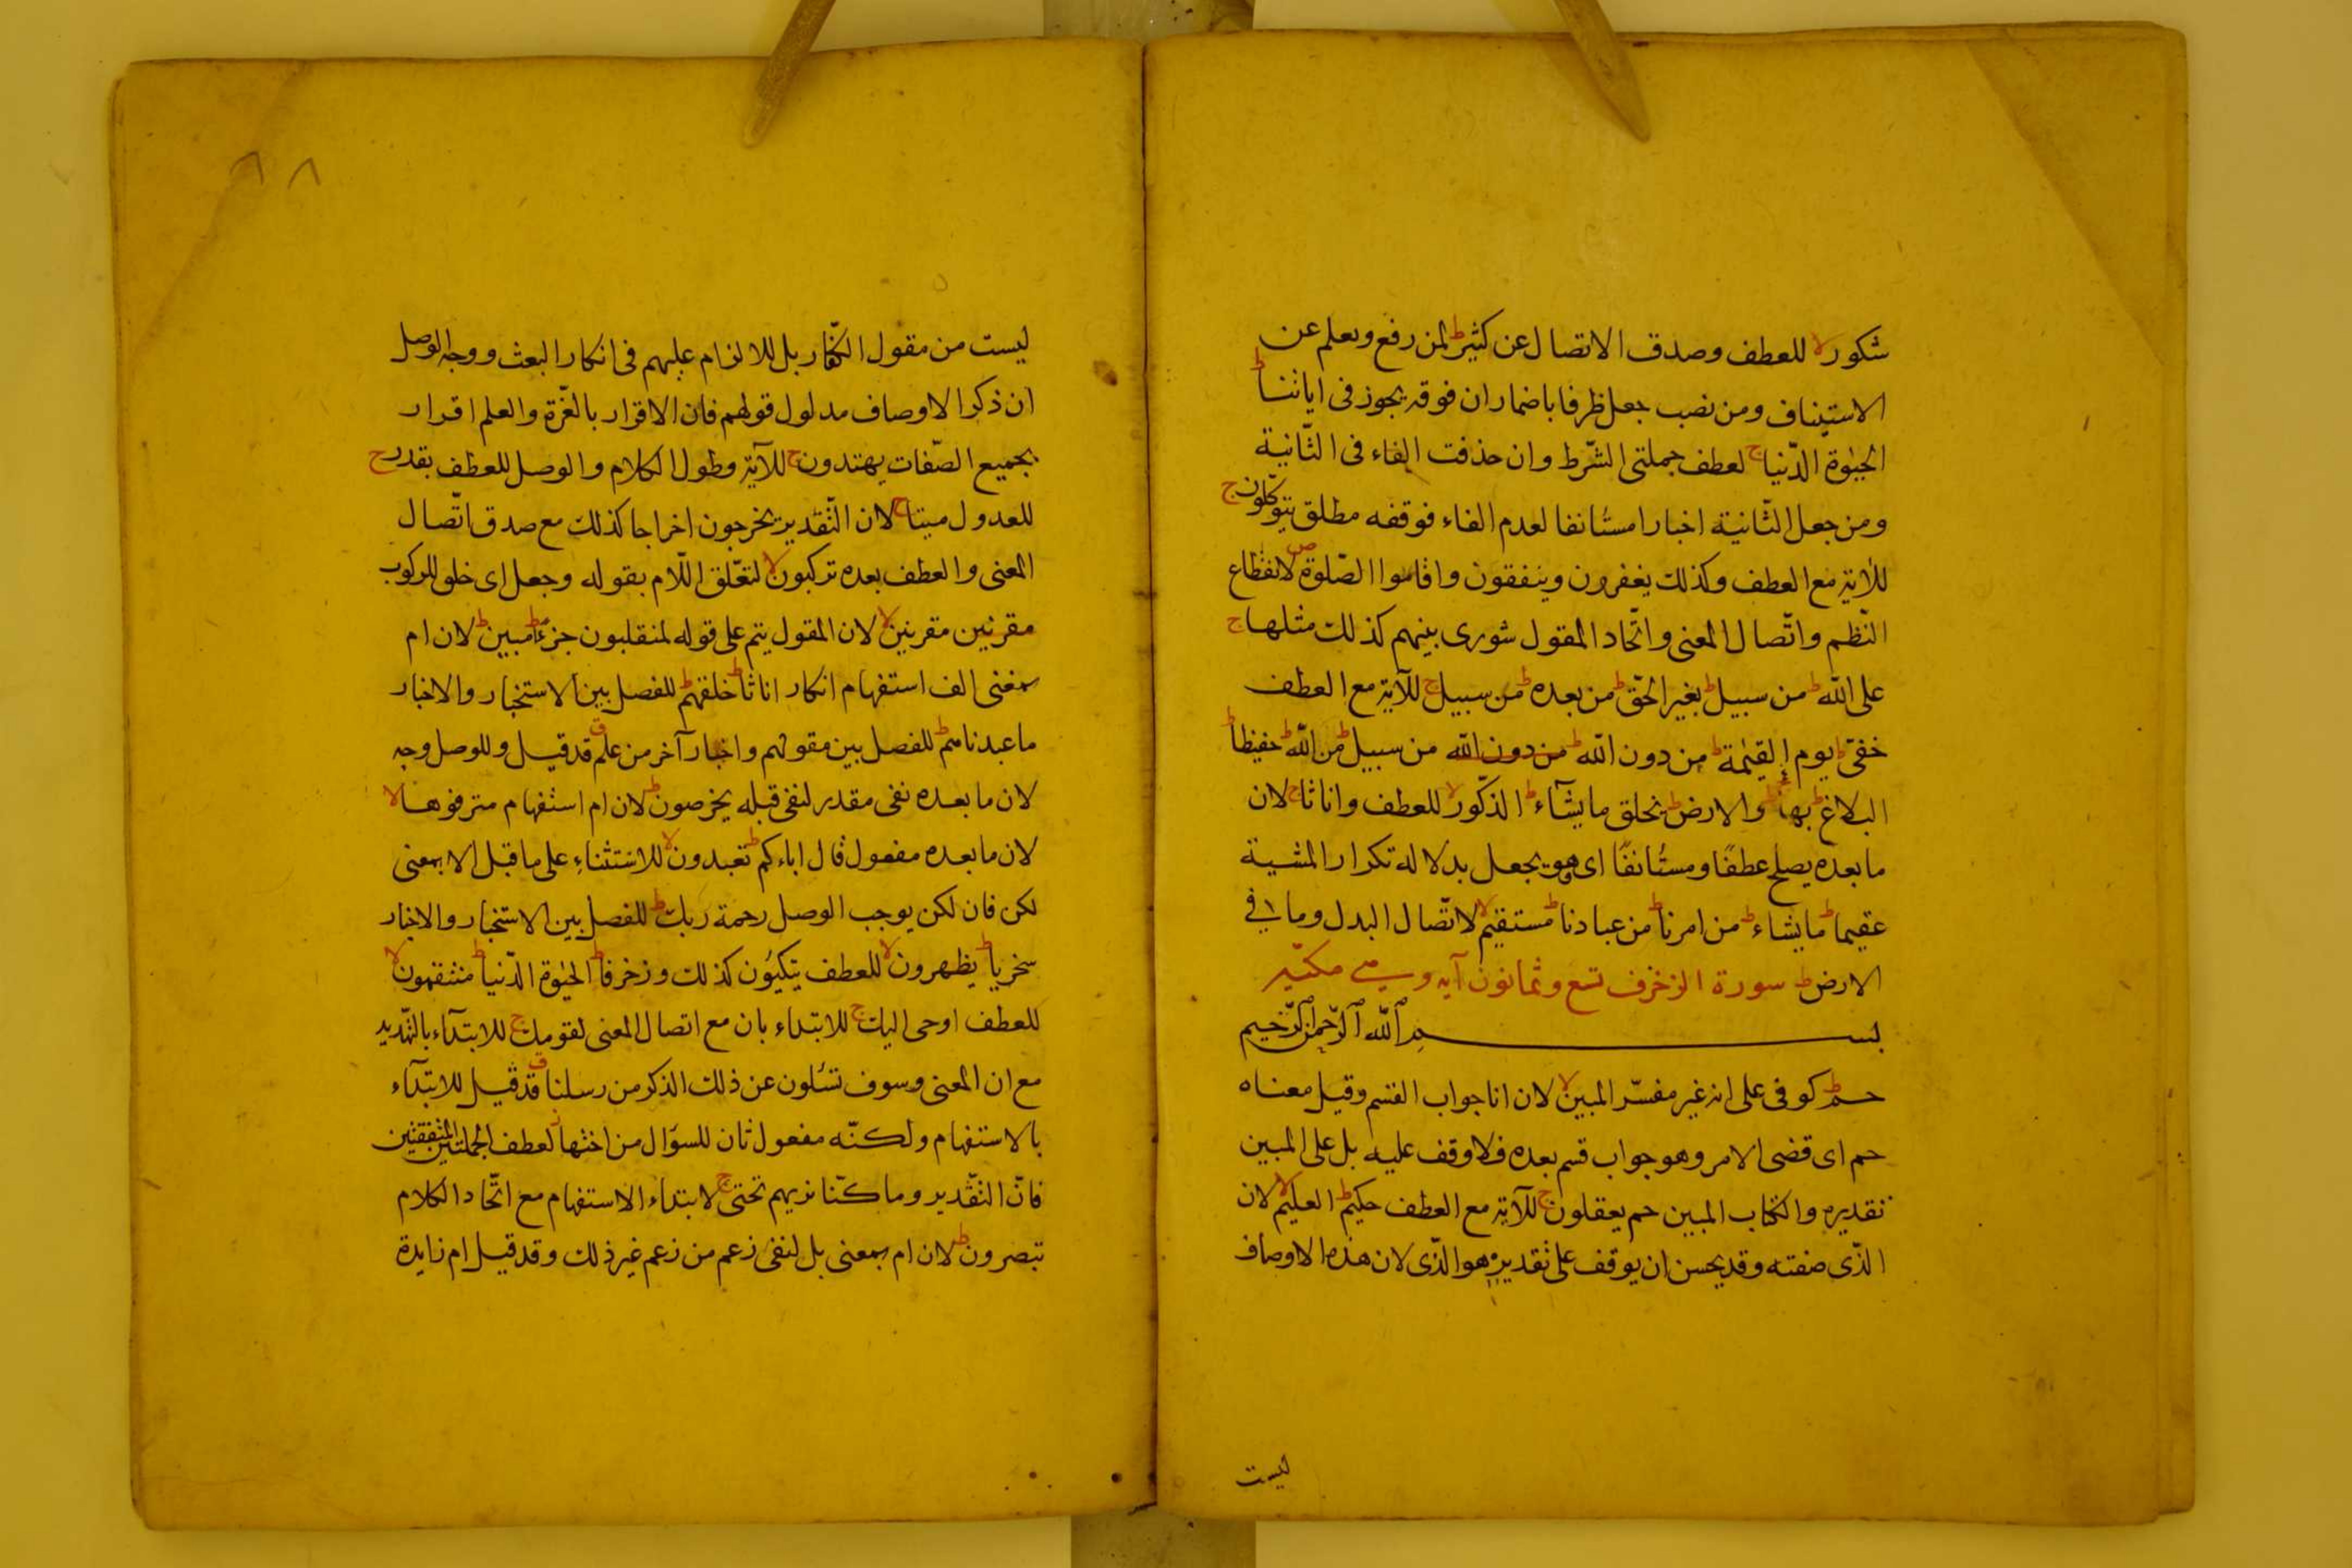 شكور لا للعطف وصدق الاتصال عن كثير ط لمن رفع ويعلم عن
الاستيناف ومن نصب جعل ظرفا باضمار ان فوقه يجوز فى اياتنا ط
الحيٰوة الدّنيا ج لعطف جملتى الشّرط وان حذفت الفاء فى الثّانية
ومن جعل الثّانية اخبارا مستٔانفا لعدم الفاء فوقفه مطلق يتوكّلون ج
للاٰية مع العطف وكذلك يغفرون وينفقون واقاموا الصّلوة ص لانقطاع
النّظم واتّصال المعنى واتّحاد المقول شورى بينهم كذلك مثلها ج
على اللّه ط من سبيل ط بغير الحّق ط من بعده ط من سبيل ج للآية مع العطف
خفىّ ط يوم القيٰمة ط من دون اللّه ط من دون اللّه من سبيل ط من اللّه ط حفيظا ط
البلاغ ط بها ج والارض ط يخلق ما يشآء ط الذكّور لا للعطف واناثا ج لان
ما بعده يصلح عطفًا ومستٔانفًا اى هو يجعل بدلالة تكرار المشية
عقيما ط ما يشاء ط من امرنا ط من عبادنا ط مستقيم لا لاتّصال البدل وما فى
الارض ط سورة الزخرف تسع وثمانون آية وسهى مكيّة
بسم اللّه الرّحمن الرّحيم
حم ط كوفى على انه غير مفسّر المبين لا لان انا جواب القسم وقيل معناه
حم اى قضى الامر وهو جواب قسم بعده فلا وقف عليه بل على المبين
تقديره والكتاب المبين حم يعقلون ج للآية مع العطف حكيم ط العليم لا لان
الذّى صفته وقد يحسن ان يوقف على تقدير هو الذّى لان هذه الاوصاف
ليست
٨٨
ليست من مقول الكفّار بل للالزام عليهم فى انكار البعث ووجه الوصل
ان ذكر الاوصاف مدلول قولهم فان الاقرار بالعزّة والعلم اقرار
بجميع الصّفات يهتدون ج للآية وطول الكلام والوصل للعطف بقدر ج
للعدول ميتا ج لان التّقدير يخرجون اخراجا كذلك مع صدق اتّصال
المعنى والعطف بعده تركبون لا لتعّلق اللّام بقوله وجعل اى خلق للركوب
مقرنين مقرنين لا لان المقول يتم على قوله لمنقلبون جزءًا ط مبين ط لان ام
بمعنى الف استفهام انكار اناثا ط خلقهم ط للفصل بين الاستخبار والاخبار
ما عبدناهم ط للفصل بين مقولهم واخبار آخر من علم ق قد قيل وللوصل وجه
لان ما بعده نفى مقدر لنفى قبله يخرصون ط لان ام استفهام مترفوها لا
لان ما بعده مفعول قال اباءكم ط تعبدون لا للاستثناء على ما قبل الا بمعنى
لكن فان لكن يوجب الوصل رحمة ربك ط للفصل بين الاستخبار والاخبار
سخريا ط يظهرون لا للعطف يتكيؤن كذلك وزخرفا ط الحيٰوة الدّنيا ط منتقمون لا
للعطف اوحى اليك ج للابتداء بان مع اتصال المعنى لقومك ج للابتدآء بالتّهديد
مع ان المعنى وسوف تسٔلون عن ذلك الذكر من رسلنا ق قد قيل للابتدآء
بالاستفهام ولكنّه مفعول ثان للسؤال من اختها ز لعطف الجملتين المتفقتين
فانّ التّقدير وما كنّا نريهم تحتى ج لابتداء الاستفهام مع اتّحاد الكلام
تبصرون ط لان ام بمعنى بل لنفى زعم من زعم غير ذلك وقد قيل ام زايدة